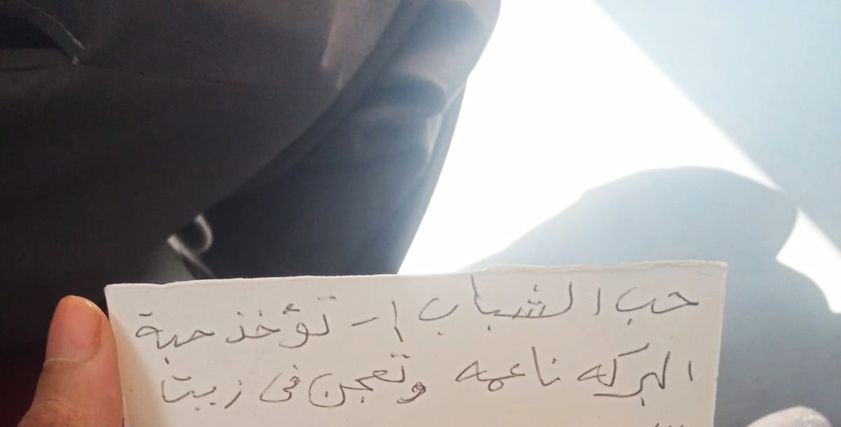 حب الشباب ١- تؤخذ حبة
البركه ناعمه وتعجن فى زيت